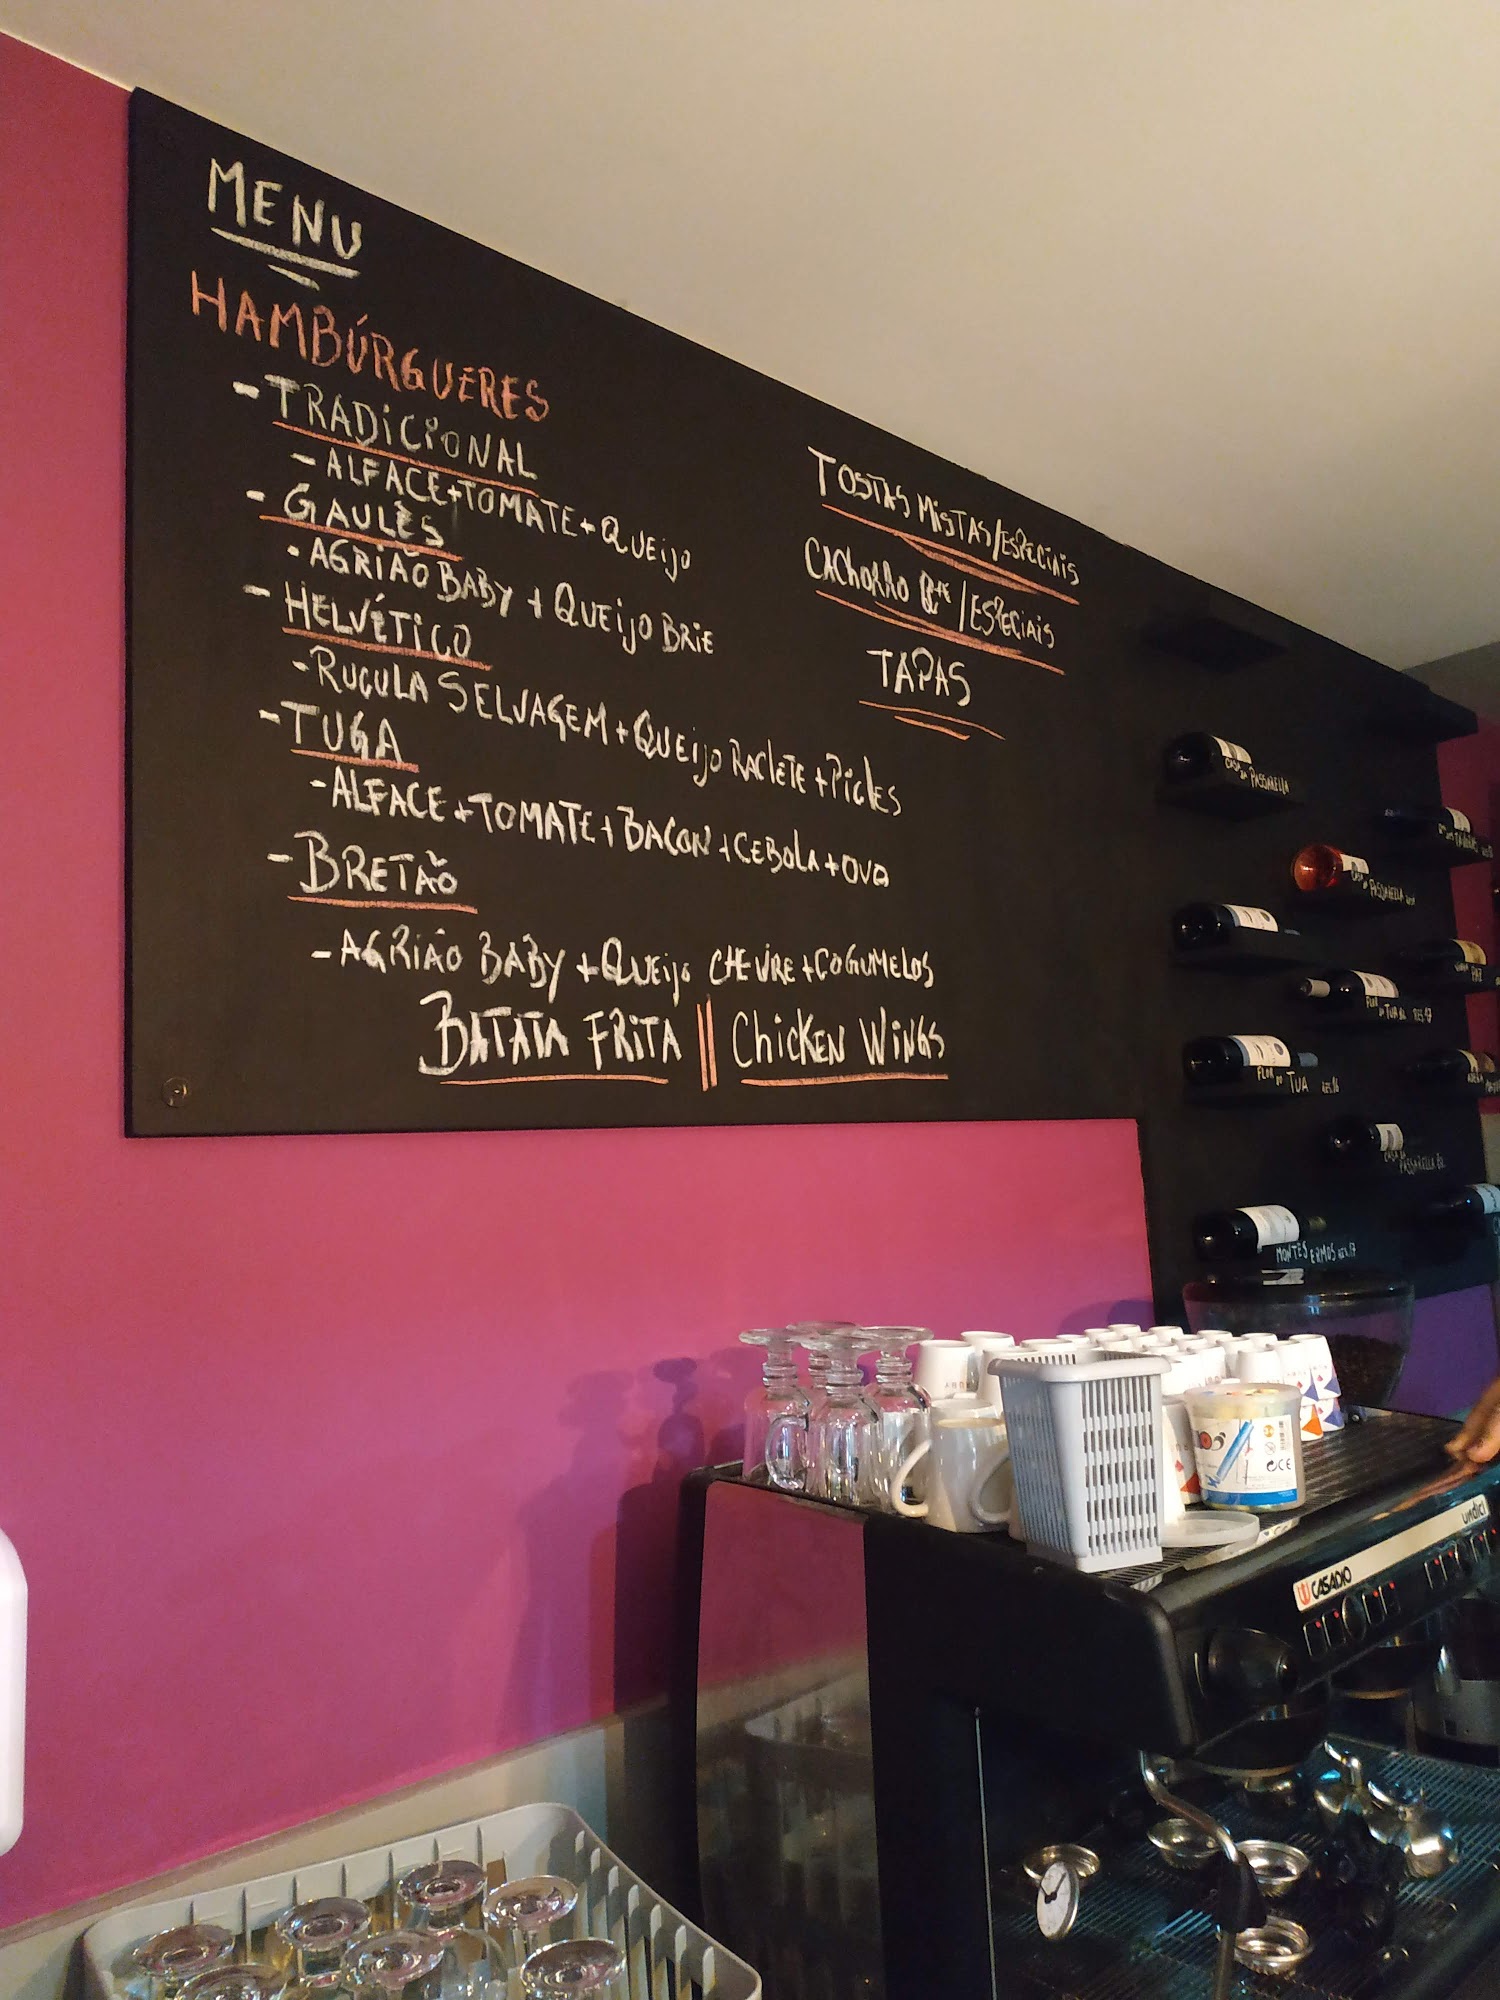 MENU
HAMBÚRGUERES
- TRADICIONAL
- ALFACE + TOMATE + QUEIJO
- GAULÊS
• AGRIÃO BABY + QUEIJO BRIE
- HELVÉTICO
- RUCULA SELVAGEM + QUEIJO RACLETE + PICLES
- TUGA
- ALFACE + TOMATE + BACON + CEBOLA + OVO
- BRETÃO
- AGRIÃO BABY + QUEIJO CHEVRE + COGUMELOS
BATATA FRITA || CHICKEN WINGS
TOSTAS MISTAS/ESPECIAIS
CACHORRO /ESPECIAIS
TAPAS
CASA DA PASSARELLA
CASA DA PASSARELLA
FLOR DO TUA RES. 17
FLOR DO TUA RES. 16
CASA DA PASSARELLA
MONTES ERMOS RES. 17
CASADIO
undici
CE